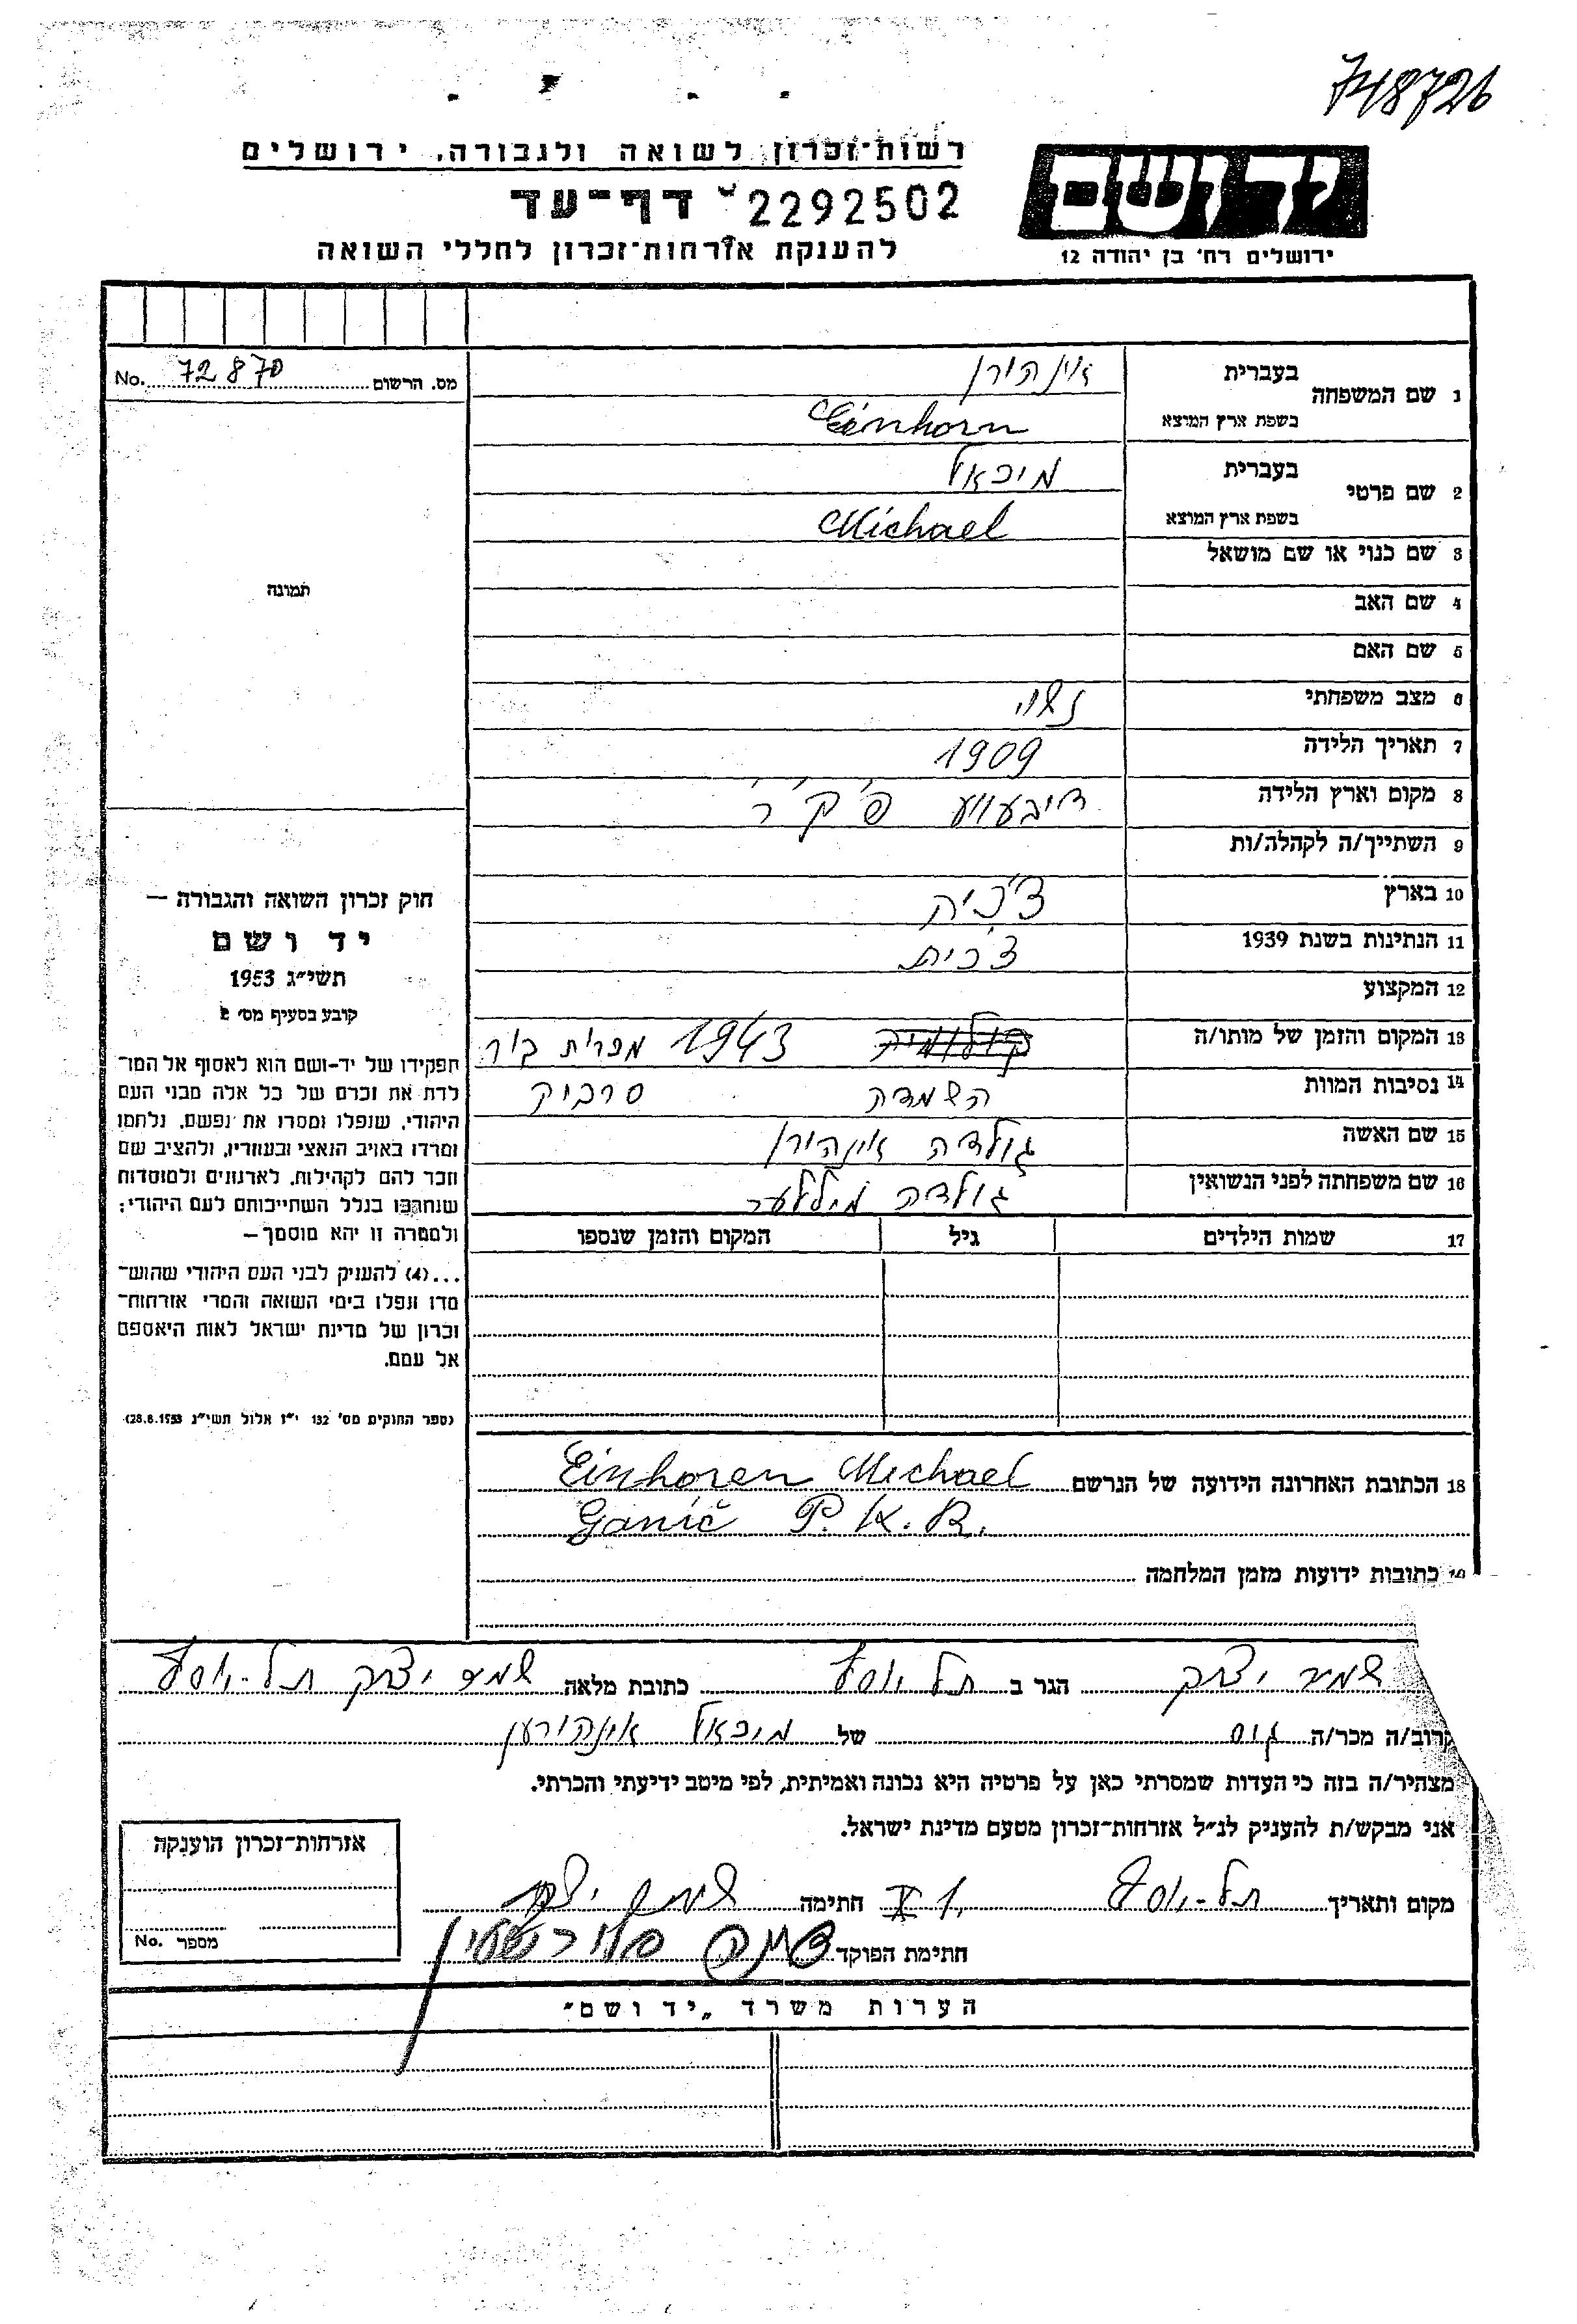 748726
רשות־זכרון לשואה ולגבורה, ירושלים
דף־עד 2292502
להענקת אזרחות־זכרון לחללי השואה
יד ושם
ירושלים רח׳ בן יהודה 12
מס. הרשום 72870 No.
תמונה
1 שם המשפחה
בעברית אינהורן
בשפת ארץ המוצא Einhorn
2 שם פרטי
בעברית מיכאל
בשפת ארץ המוצא Michael
3 שם כנוי או שם מושאל
4 שם האב
5 שם האם
6 מצב משפחתי נשוי
7 תאריך הלידה 1909
8 מקום וארץ הלידה דיבעווע פ׳ ק׳ ר׳
9 השתייך/ה לקהלה/ות
10 בארץ צ׳כיה
11 הנתינות בשנת 1939 צ׳כית
12 המקצוע
13 המקום והזמן של מותו/ה 1943 בור
14 נסיבות המוות השמדה
15 שם האשה גולדה אינהורן
16 שם משפחתה לפני הנשואין גולדה מיללער
17 שמות הילדים גיל המקום והזמן שנספו
חוק זכרון השואה והגבורה —
יד ושם
תשי״ג 1953
קובע בסעיף מס׳ 2
תפקידו של יד-ושם הוא לאסוף אל המו־
לדת את זכרם של כל אלה מבני העם
היהודי, שנפלו ומסרו את נפשם, נלחמו
ומרדו באויב הנאצי ובעוזריו, ולהציב שם
וזכר להם לקהילות, לארגונים ולמוסדות
שנחרבו בגלל השתייכותם לעם היהודי;
ולמטרה זו יהא מוסמך—
...(4) להעניק לבני העם היהודי שהוש־
מדו ונפלו בימי השואה והמרי אזרחות־
זכרון של מדינת ישראל לאות היאספם
אל עמם.
(ספר החוקים מס׳ 132 י״ז אלול תשי״ג 28.8.1953)
18 הכתובת האחרונה הידועה של הנרשם Einhoren Michael
Ganič P.K.R.
כתובות ידועות מזמן המלחמה
שמיר יצחק הגר ב תל-יוסף כתובת מלאה שמיר יצחק תל-יוסף
קרוב/ה מכר/ה גיס של מיכאל אינהורען
מצהיר/ה בזה כי העדות שמסרתי כאן על פרטיה היא נכונה ואמיתית, לפי מיטב ידיעתי והכרתי.
אני מבקש/ת להעניק לנ״ל אזרחות־זכרון מטעם מדינת ישראל.
מקום ותאריך תל-יוסף 1. X חתימה שמיר יצחק
חתימת הפוקד
אזרחות-זכרון הוענקה
מספר No.
הערות משרד „יד ושם״